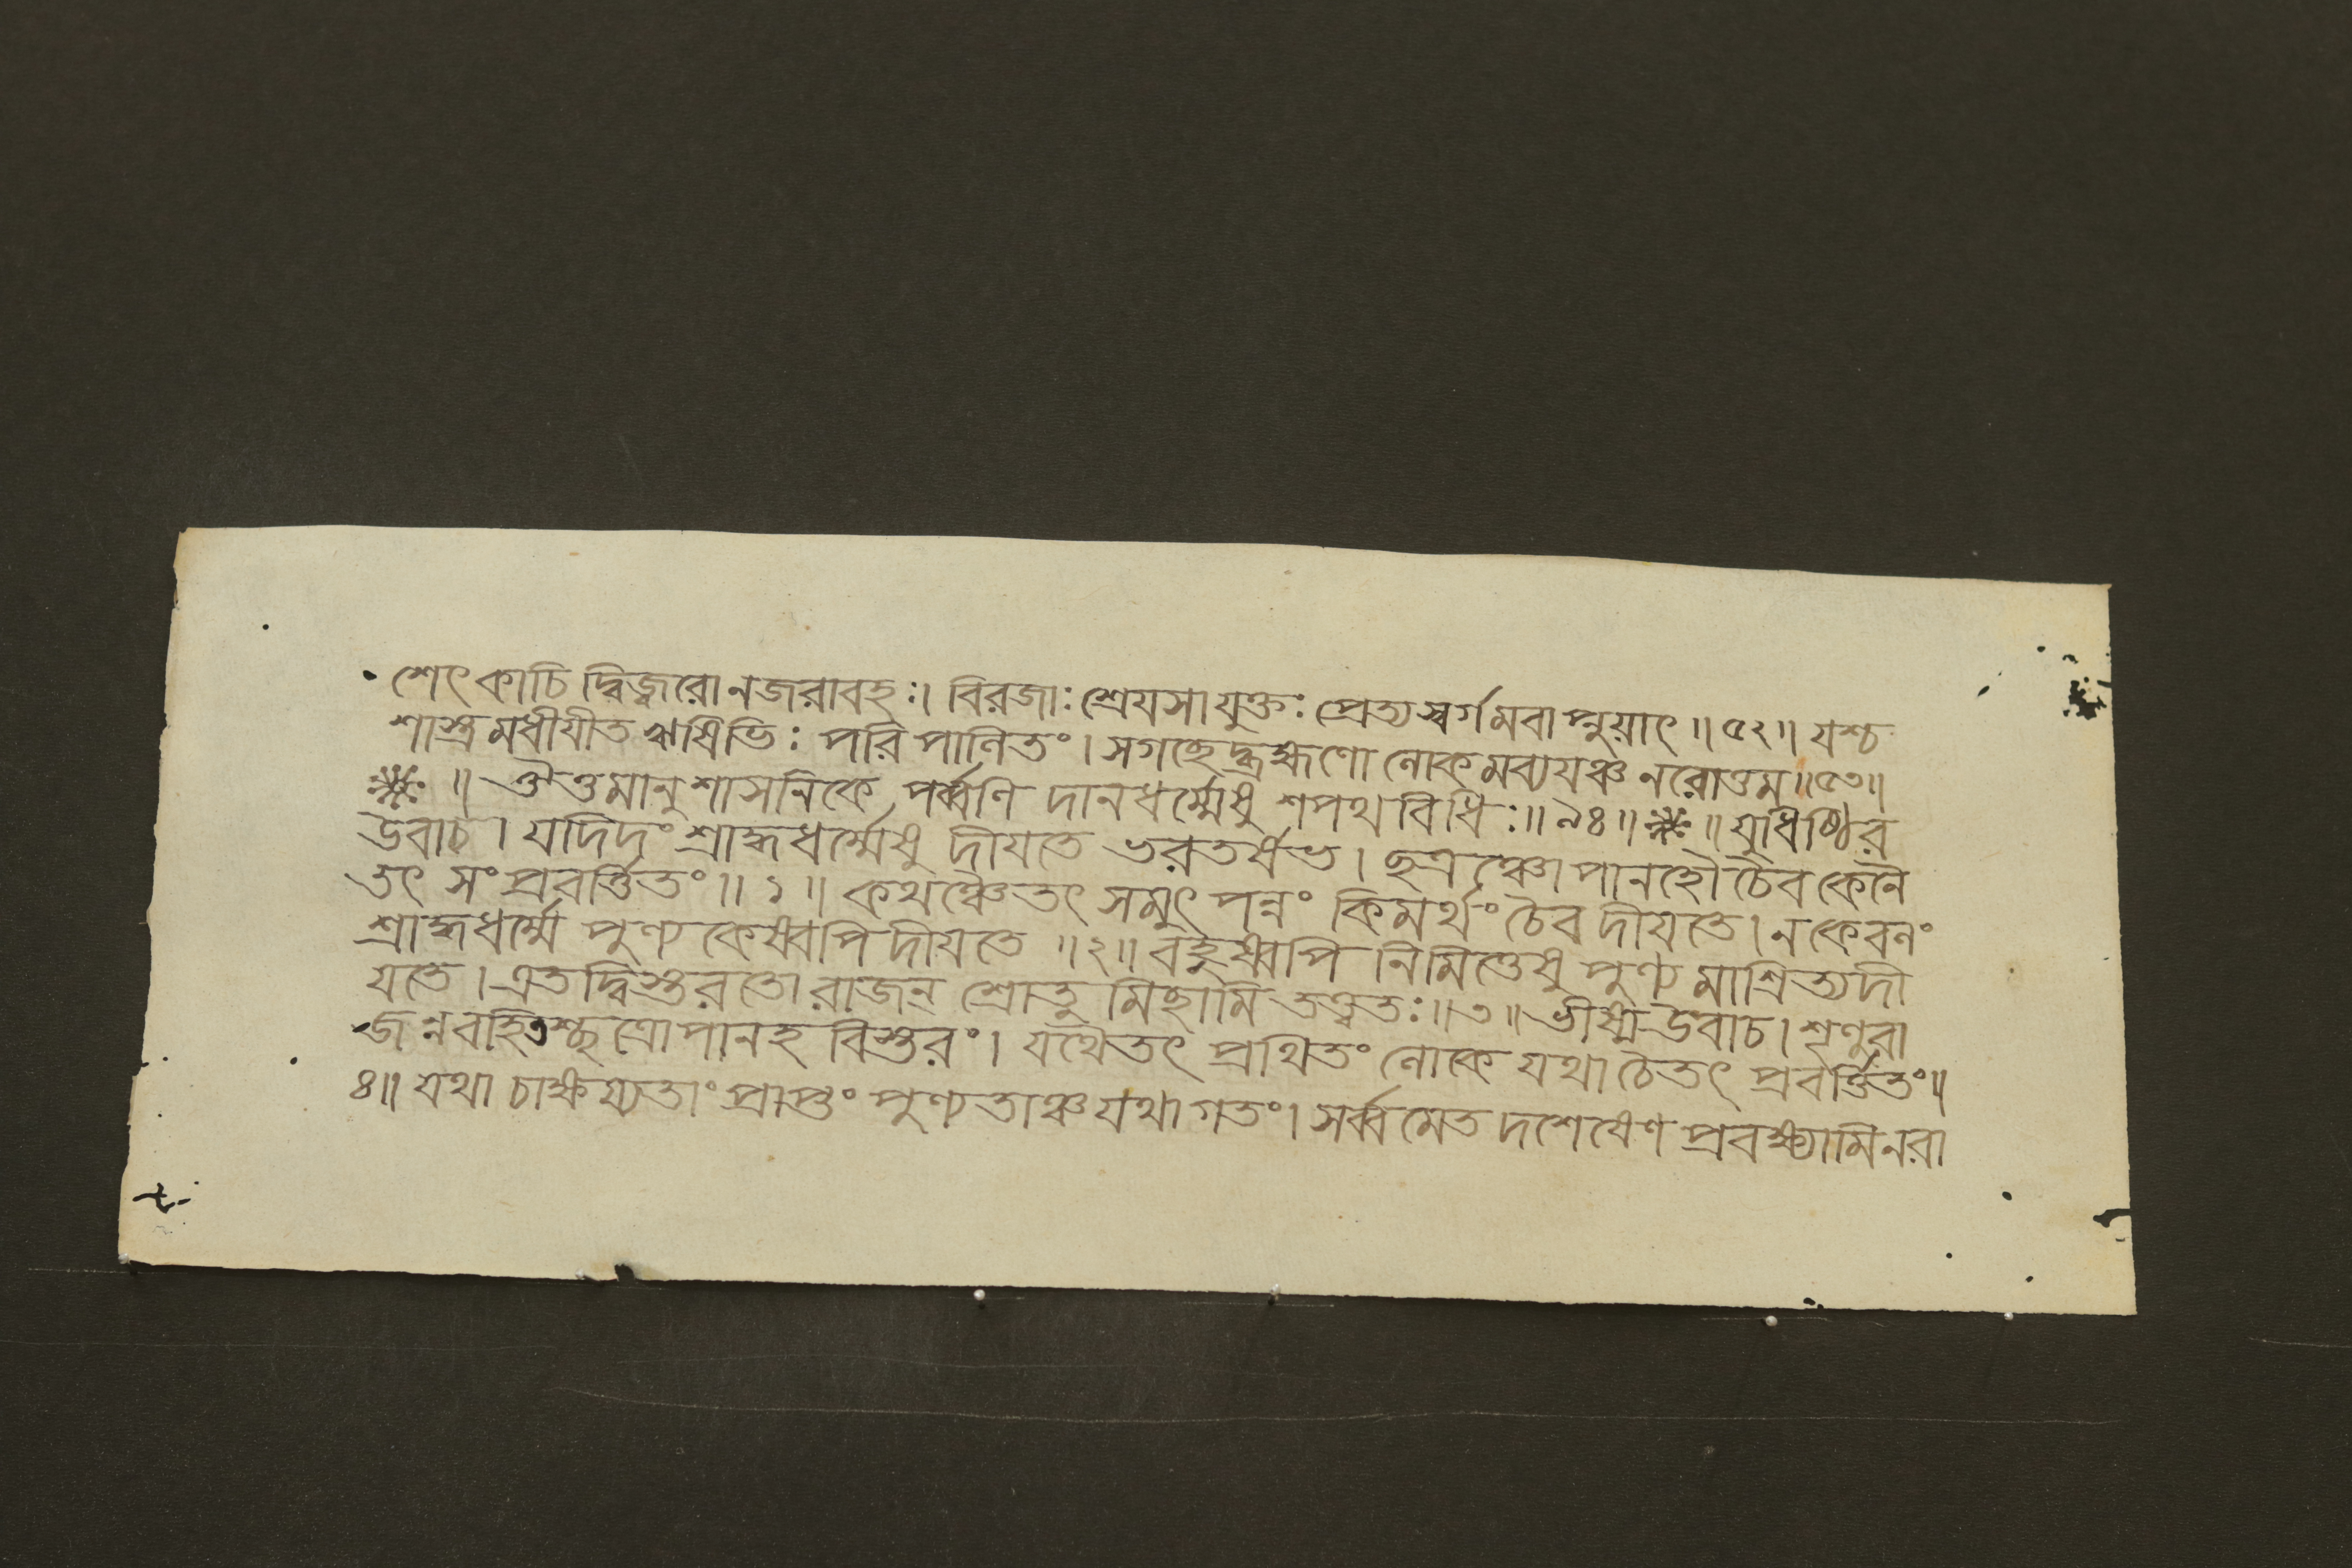 শেৎ কাচি দ্বিজ্বরো নজরাবহঃ। বিরজাঃ শ্রেযসা যুক্তঃ প্রেত্য স্বর্গমবাপ্নুয়াৎ ॥ ৫২ ॥ যশ্চ
শাস্ত্রমধীযীত ঋষিভিঃ পরি পালিতং। সগচ্ছেদ্ব্রহ্মণো লোকমব্যযঞ্চ নরোত্তম ॥ ৫৩ ॥
॥ ঔত্তমানুশাসনিকে পর্ব্বণি দানধর্ম্মেষু শপথ বিধিঃ ॥ ৯৪ ॥ ॥ যুধিষ্ঠির
উবাচ। যদিদং শ্রাদ্ধধর্ম্মেষু দীযতে ভরতর্ষভ। ছত্রঞ্চোপানহৌ চৈব কেনৈ
তৎ সংপ্রবর্ত্তিতং ॥ ১ ॥ কথঞ্চৈতৎ সমুৎ পন্নং কিমর্থং চৈব দীযতে। ন কেবলং
শ্রাদ্ধধর্ম্মে পুণ্যকেষ্বপি দীযতে ॥ ২ ॥ বহুষ্বপি নিমিত্তেষু পুণ্য মাশ্রিত্য দী
যতে। এতদ্বিস্তরতো রাজন্ শ্রোতু মিছামি তত্ত্বতঃ ॥ ৩ ॥ ভীষ্ম উবাচ। শৃণু রা
জন্নবহিতশ্ছত্রোপানহ বিস্তরং। যথৈতৎ প্রথিতং লোকে যথা চৈতৎ প্রবর্ত্তিতং ॥
৪ ॥ যথা চাক্ষয্যতাং প্রাপ্তং পুণ্যতাঞ্চ যথা গতং। সর্ব্বমেত দশেষেণ প্রবক্ষ্যামি নরা